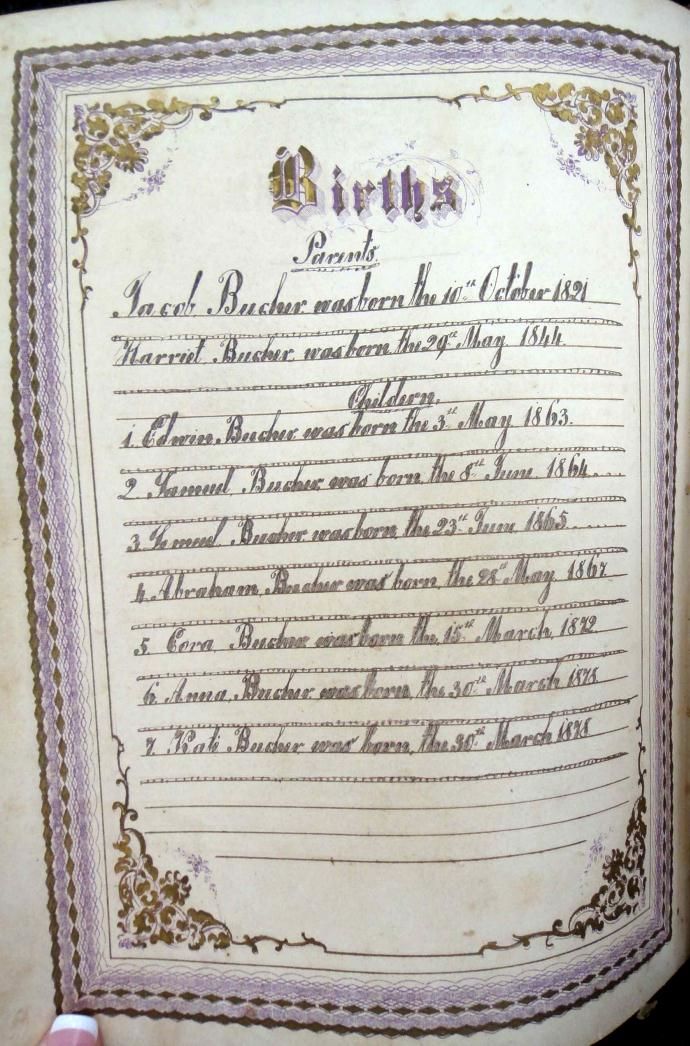 Births
Parents.
Jacob Bucher was born the 10th October 1821
Harriet Bucher was born the 29th May 1844
Childern.
1. Edwin Bucher was born the 3rd May 1863.
2. Samuel Bucher was born the 8th June 1864
3. Lemuel Bucher was born the 23rd June 1865
4. Abraham Bucher was born the 28th May 1867
5. Cora Bucher was born the 15th March 1872
6. Anna Bucher was born the 30th March 1878
7. Kati Bucher was born the 30th March 1878